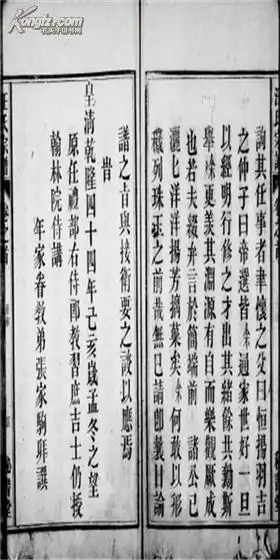 Kongfz.com
孔夫子旧书网
詢其任事者聿懷之次父曰恒揚羽吉
之仲子曰帝選皆余通家世好一旦
以經明行修之才出其緒餘共勷斯
舉余更美其淵源有自而樂觀厥成
也若夫綴弁言於簡端前諸丞已
灑七洋洋揚芳摛藻矣余何敢以形
穢列珠玉之前哉無已請卽曩日論
譜之言與接衛要之談以應焉
皇清乾隆四十四年己亥歲孟冬之望
原任禮部右侍郎教習庶吉士仍授
翰林院侍講
年家眷敎弟張家駒拜譔